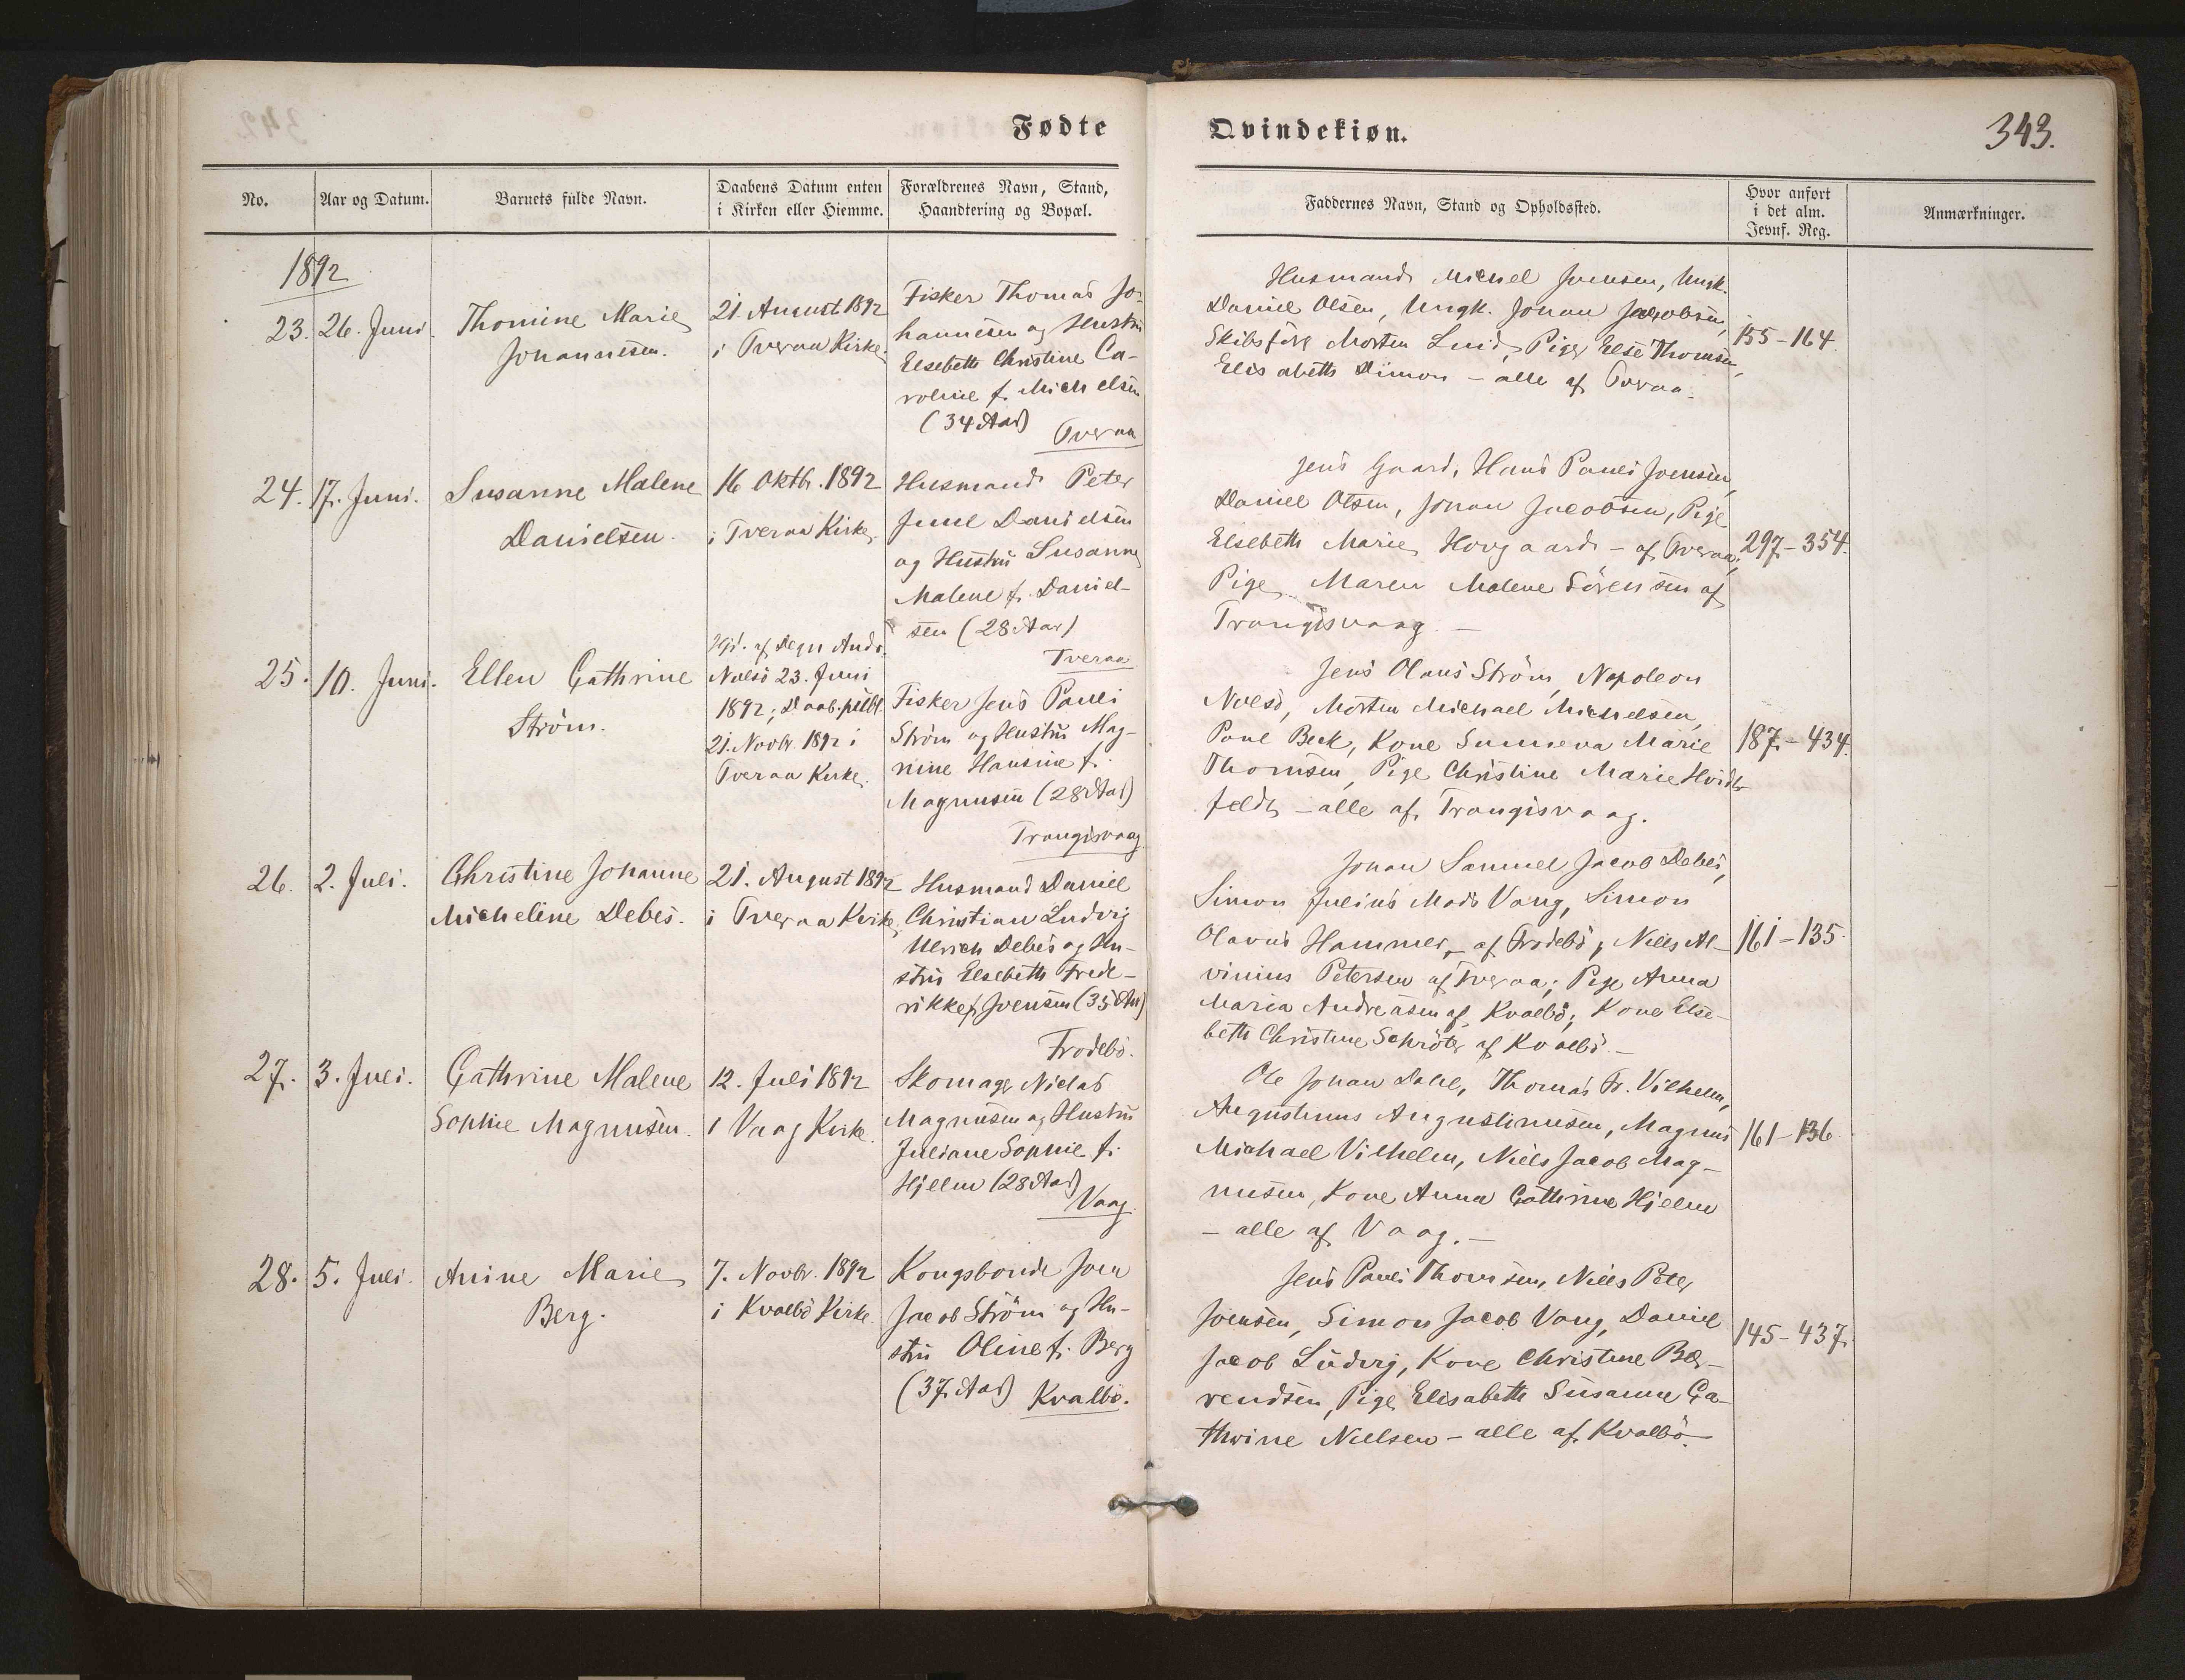 Fødte
Qvindekiøn.
343.
No.
Aar og Datum.
Barnets fulde Navn.
Daabens Datum enten
i Kirken eller Hiemme.
Forældrenes Navn, Stand,
Haandtering og Bopæl.
Faddernes Navn, Stand og Opholdssted.
Hvor anført
i det alm.
Jevnf. Reg.
Anmærkninger.
1892
23.
26. Juni
Thomine Marie
Johannesen.
21. August 1892
i Tveraa Kirke.
Fisker Thomas Jo-
hannesen og Hustru
Elsebeth Christine Ca-
roline f. Michelsen
(34 Aar)
Tveraa
Husmand Michel Joensen, Ungk.
Daniel Olsen, Ungk. Johan Jacobsen,
Skibsfører Morten Luid, Pige Else Thomsen,
Elisabeth Dimon - alle af Tveraa.
155-164.
24.
17. Juni.
Susanne Malene
Danielsen.
16 Oktbr. 1892
i Tveraa Kirke.
Husmand Peter
Juul Danielsen
og Hustru Susanne
Malene f. Daniel-
sen (28 Aar)
Tveraa
Jens Gaard, Hans Pauli Joensen,
Daniel Olsen, Johan Jacobsen, Pige
Elsebeth Marie Hovgaard - af Tveraa;
Pige Maren Malene Sörensen af
Trangisvaag. -
297-354.
25.
10. Juni.
Ellen Cathrine
Ström.
Hjd. af Degn Andr.
Nolsö 23. Juni
1892; Daab. publ.
21. Novbr. 1892 i
Tveraa Kirke.
Fisker Jens Pauli
Ström og Hustru Mag-
nine Hansine f.
Magnusen (28 Aar)
Trangisvaag
Jens Olaus Ström, Napoleon
Nolsö, Morten Michael Michelsen,
Poul Beck, Kone Sunneva Marie
Thomsen, Pige Christine Marie Hvidt-
feldt - alle af Trangisvaag.
187-434.
26.
2. Juli.
Christine Johanne
Micheline Debes.
21. August 1892
i Tveraa Kirke,
Husmand Daniel
Christian Ludvig
Ulrich Debes og Hu-
stru Elsebeth Frede-
rikke f. Joensen (35 Aar)
Frodebö.
Johan Samuel Jacob Debes,
Simon Julius Mads Vang, Simon
Olavus Hammer, - af Frodebö, Niels Al-
vinius Petersen af Tveraa; Pige Anna
Maria Andreasen af Kvalbö; Kone Else-
beth Christine Schröter af Kvalbö. -
161-135.
27.
3. Juli.
Cathrine Malene
Sophie Magnusen.
12. Juli 1892
i Vaag Kirke.
Skomager Niclas
Magnusen og Hustru
Juliane Sophie f.
Hjelm (28 Aar)
Vaag.
Ole Johan Dahl, Thomas Fr. Vilhelm,
Augustinus Augustinusen, Magnus
Michael Vilhelm, Niels Jacob Mag-
nusen, Kone Anna Cathrine Hjelm
- alle af Vaag. -
161-136.
28.
5. Juli.
Anine Marie
Berg.
7. Novbr. 1892
i Kvalbö Kirke.
Kongsbonde Joen
Jacob Ström og Hu-
stru Oline f. Berg
(37 Aar) Kvalbö.
Jens Pauli Thomsen, Niels Peter
Joensen, Simon Jacob Vang, Daniel
Jacob Ludvig, Kone Christine Bæ-
rendsen, Pige Elisabeth Susanne Ca-
thrine Nielsen - alle af Kvalbö.
145-437.